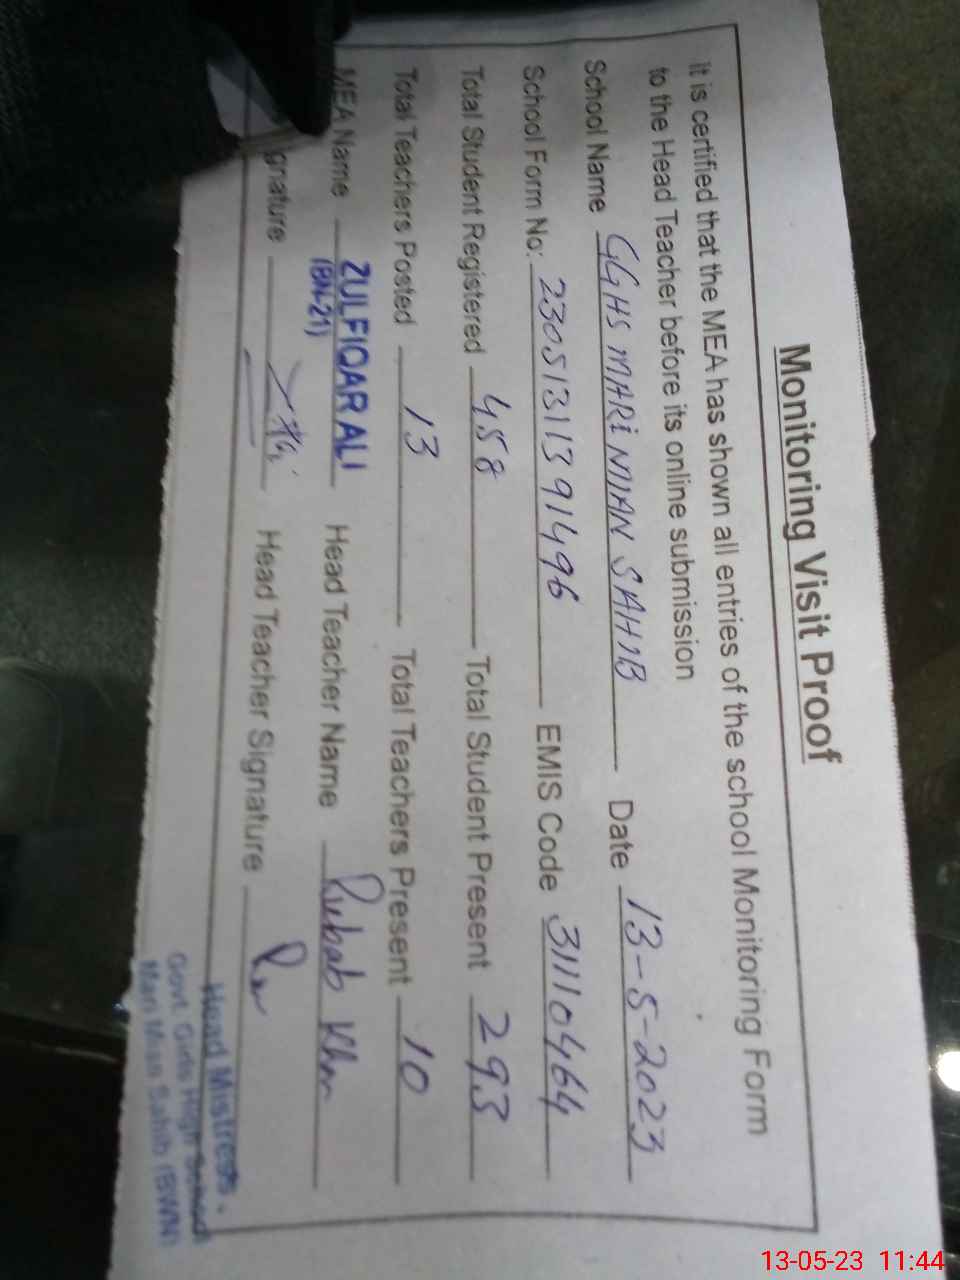 Monitoring Visit Proof
it is certified that the MEA has shown all entries of the school Monitoring Form
to the Head Teacher before its online submission
School Name GGHS MARI MIAN SAHIB Date 13-5-2023
School Form No: 2305131139 1496 EMIS Code 31110464
Total Student Registered 458 Total Student Present 293
Total Teachers Posted 13 Total Teachers Present 10
MEA Name ZULFIQAR ALI Head Teacher Name Rubab Khan
(BN-21)
gnature Head Teacher Signature
Head Mistress
Govt. Girls High School
Mari Mian Sahib (BWN)
13-05-23 11:44